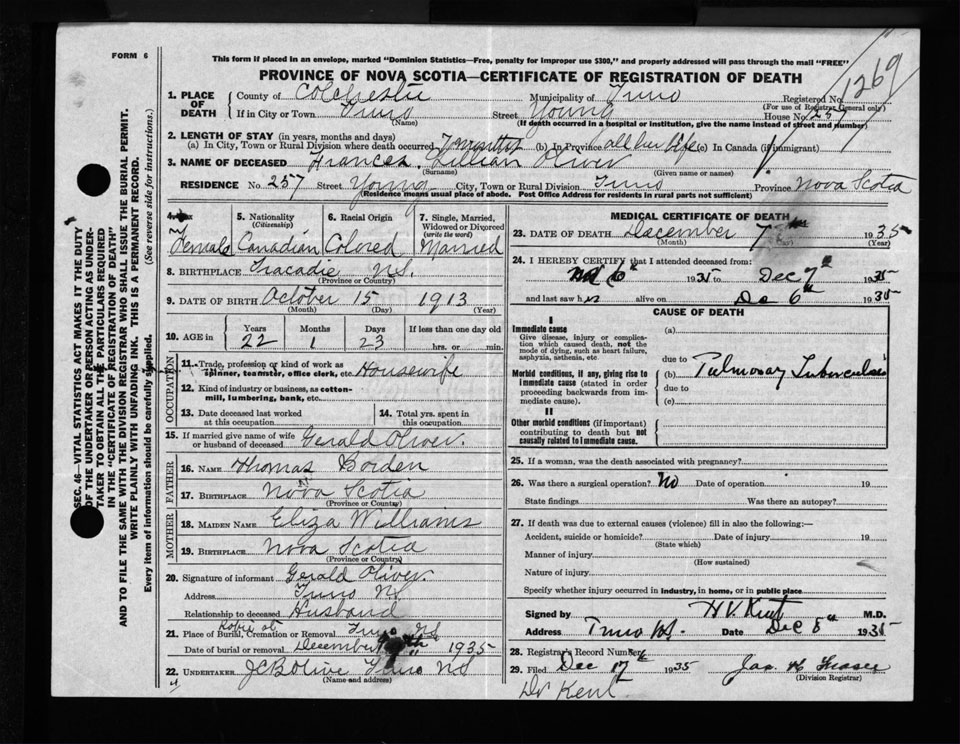 FORM 6
This form if placed in an envelope, marked "Dominion Statistics—Free, penalty for improper use $300," and properly addressed will pass through the mail "FREE"
PROVINCE OF NOVA SCOTIA—CERTIFICATE OF REGISTRATION OF DEATH
1269
1. PLACE OF DEATH County of Colchester Municipality of Truro Registered No.
(For use of Registrar General only)
If in City or Town Truro Street Young House No. 257
(Name) (If death occurred in a hospital or institution, give the name instead of street and number)
2. LENGTH OF STAY (in years, months and days)
(a) In City, Town or Rural Division where death occurred 7 months (b) In Province all her life (c) In Canada (if immigrant)
3. NAME OF DECEASED Frances Lillian Oliver
(Surname) (Given name or names)
RESIDENCE No. 257 Street Young City, Town or Rural Division Truro Province Nova Scotia
(Residence means usual place of abode. Post Office Address for residents in rural parts not sufficient)
4. Female
5. Nationality (Citizenship) Canadian
6. Racial Origin Colored
7. Single, Married, Widowed or Divorced (write the word) Married
8. BIRTHPLACE Tracadie N.S.
(Province or Country)
9. DATE OF BIRTH October 15 1913
(Month) (Day) (Year)
10. AGE in Years Months Days If less than one day old
22 1 23 hrs. or min.
OCCUPATION
11. Trade, profession or kind of work as spinner, teamster, office clerk, etc. Housewife
12. Kind of industry or business, as cotton-mill, lumbering, bank, etc.
13. Date deceased last worked at this occupation
14. Total yrs. spent in this occupation
15. If married give name of wife or husband of deceased Gerald Oliver.
FATHER
16. NAME Thomas Borden
17. BIRTHPLACE Nova Scotia
(Province or Country)
MOTHER
18. MAIDEN NAME Eliza Williams
19. BIRTHPLACE Nova Scotia
(Province or Country)
20. Signature of informant Gerald Oliver.
Address Truro N.S.
Relationship to deceased Husband
21. Place of Burial, Cremation or Removal Truro N.S.
Date of burial or removal December 1935
22. UNDERTAKER Truro N S
(Name and address)
MEDICAL CERTIFICATE OF DEATH
23. DATE OF DEATH December 7 1935
(Month) (Year)
24. I HEREBY CERTIFY that I attended deceased from:
6th 1935 to Dec 7th 1935
and last saw her alive on De 6th 1935
CAUSE OF DEATH
I
Immediate cause (a)
Give disease, injury or complication which caused death, not the mode of dying, such as heart failure, asphyxia, asthenia, etc.
due to
Morbid conditions, if any, giving rise to immediate cause (stated in order proceeding backwards from immediate cause).
(b) Pulmonary Tuberculosis
due to
(c)
II
Other morbid conditions (if important) contributing to death but not causally related to immediate cause.
25. If a woman, was the death associated with pregnancy?
26. Was there a surgical operation? No Date of operation 19
State findings Was there an autopsy?
27. If death was due to external causes (violence) fill in also the following:—
Accident, suicide or homicide? Date of injury 19
(State which)
Manner of injury
(How sustained)
Nature of injury
Specify whether injury occurred in industry, in home, or in public place
Signed by H V Kent M.D.
Address Truro N.S. Date Dec 8th 1935
28. Registrar's Record Number
29. Filed Dec 17th 1935 Jas. H Fraser
(Division Registrar)
Dr Kent
SEC. 46—VITAL STATISTICS ACT MAKES IT THE DUTY
OF THE UNDERTAKER OR PERSON ACTING AS UNDER-
TAKER TO OBTAIN ALL THE PARTICULARS REQUIRED
IN THE "CERTIFICATE OF REGISTRATION OF DEATH"
AND TO FILE THE SAME WITH THE DIVISION REGISTRAR WHO SHALL ISSUE THE BURIAL PERMIT.
WRITE PLAINLY WITH UNFADING INK. THIS IS A PERMANENT RECORD.
Every item of information should be carefully supplied. (See reverse side for instructions.)